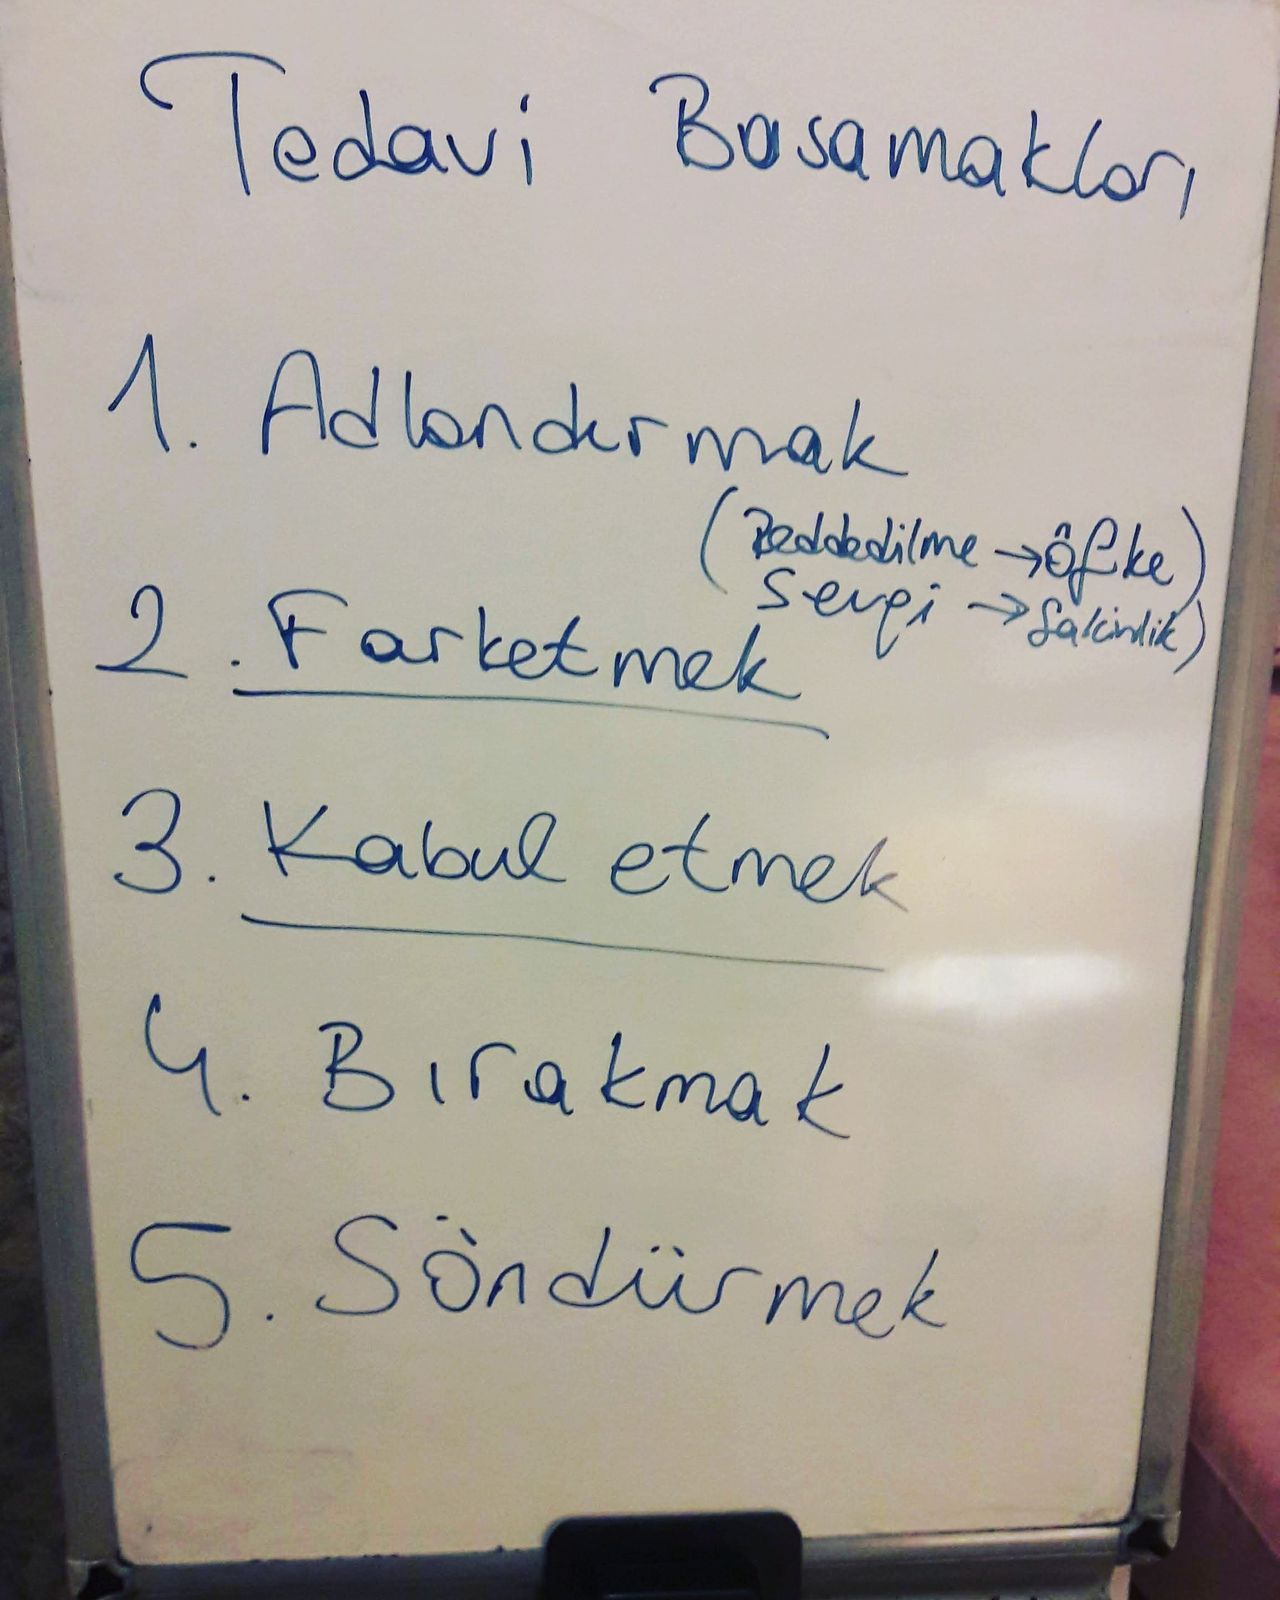 Tedavi Basamakları
1. Adlandırmak
(Reddedilme → Öfke)
Sevgi → Sakinlik)
2. Farketmek
3. Kabul etmek
4. Bırakmak
5. Söndürmek